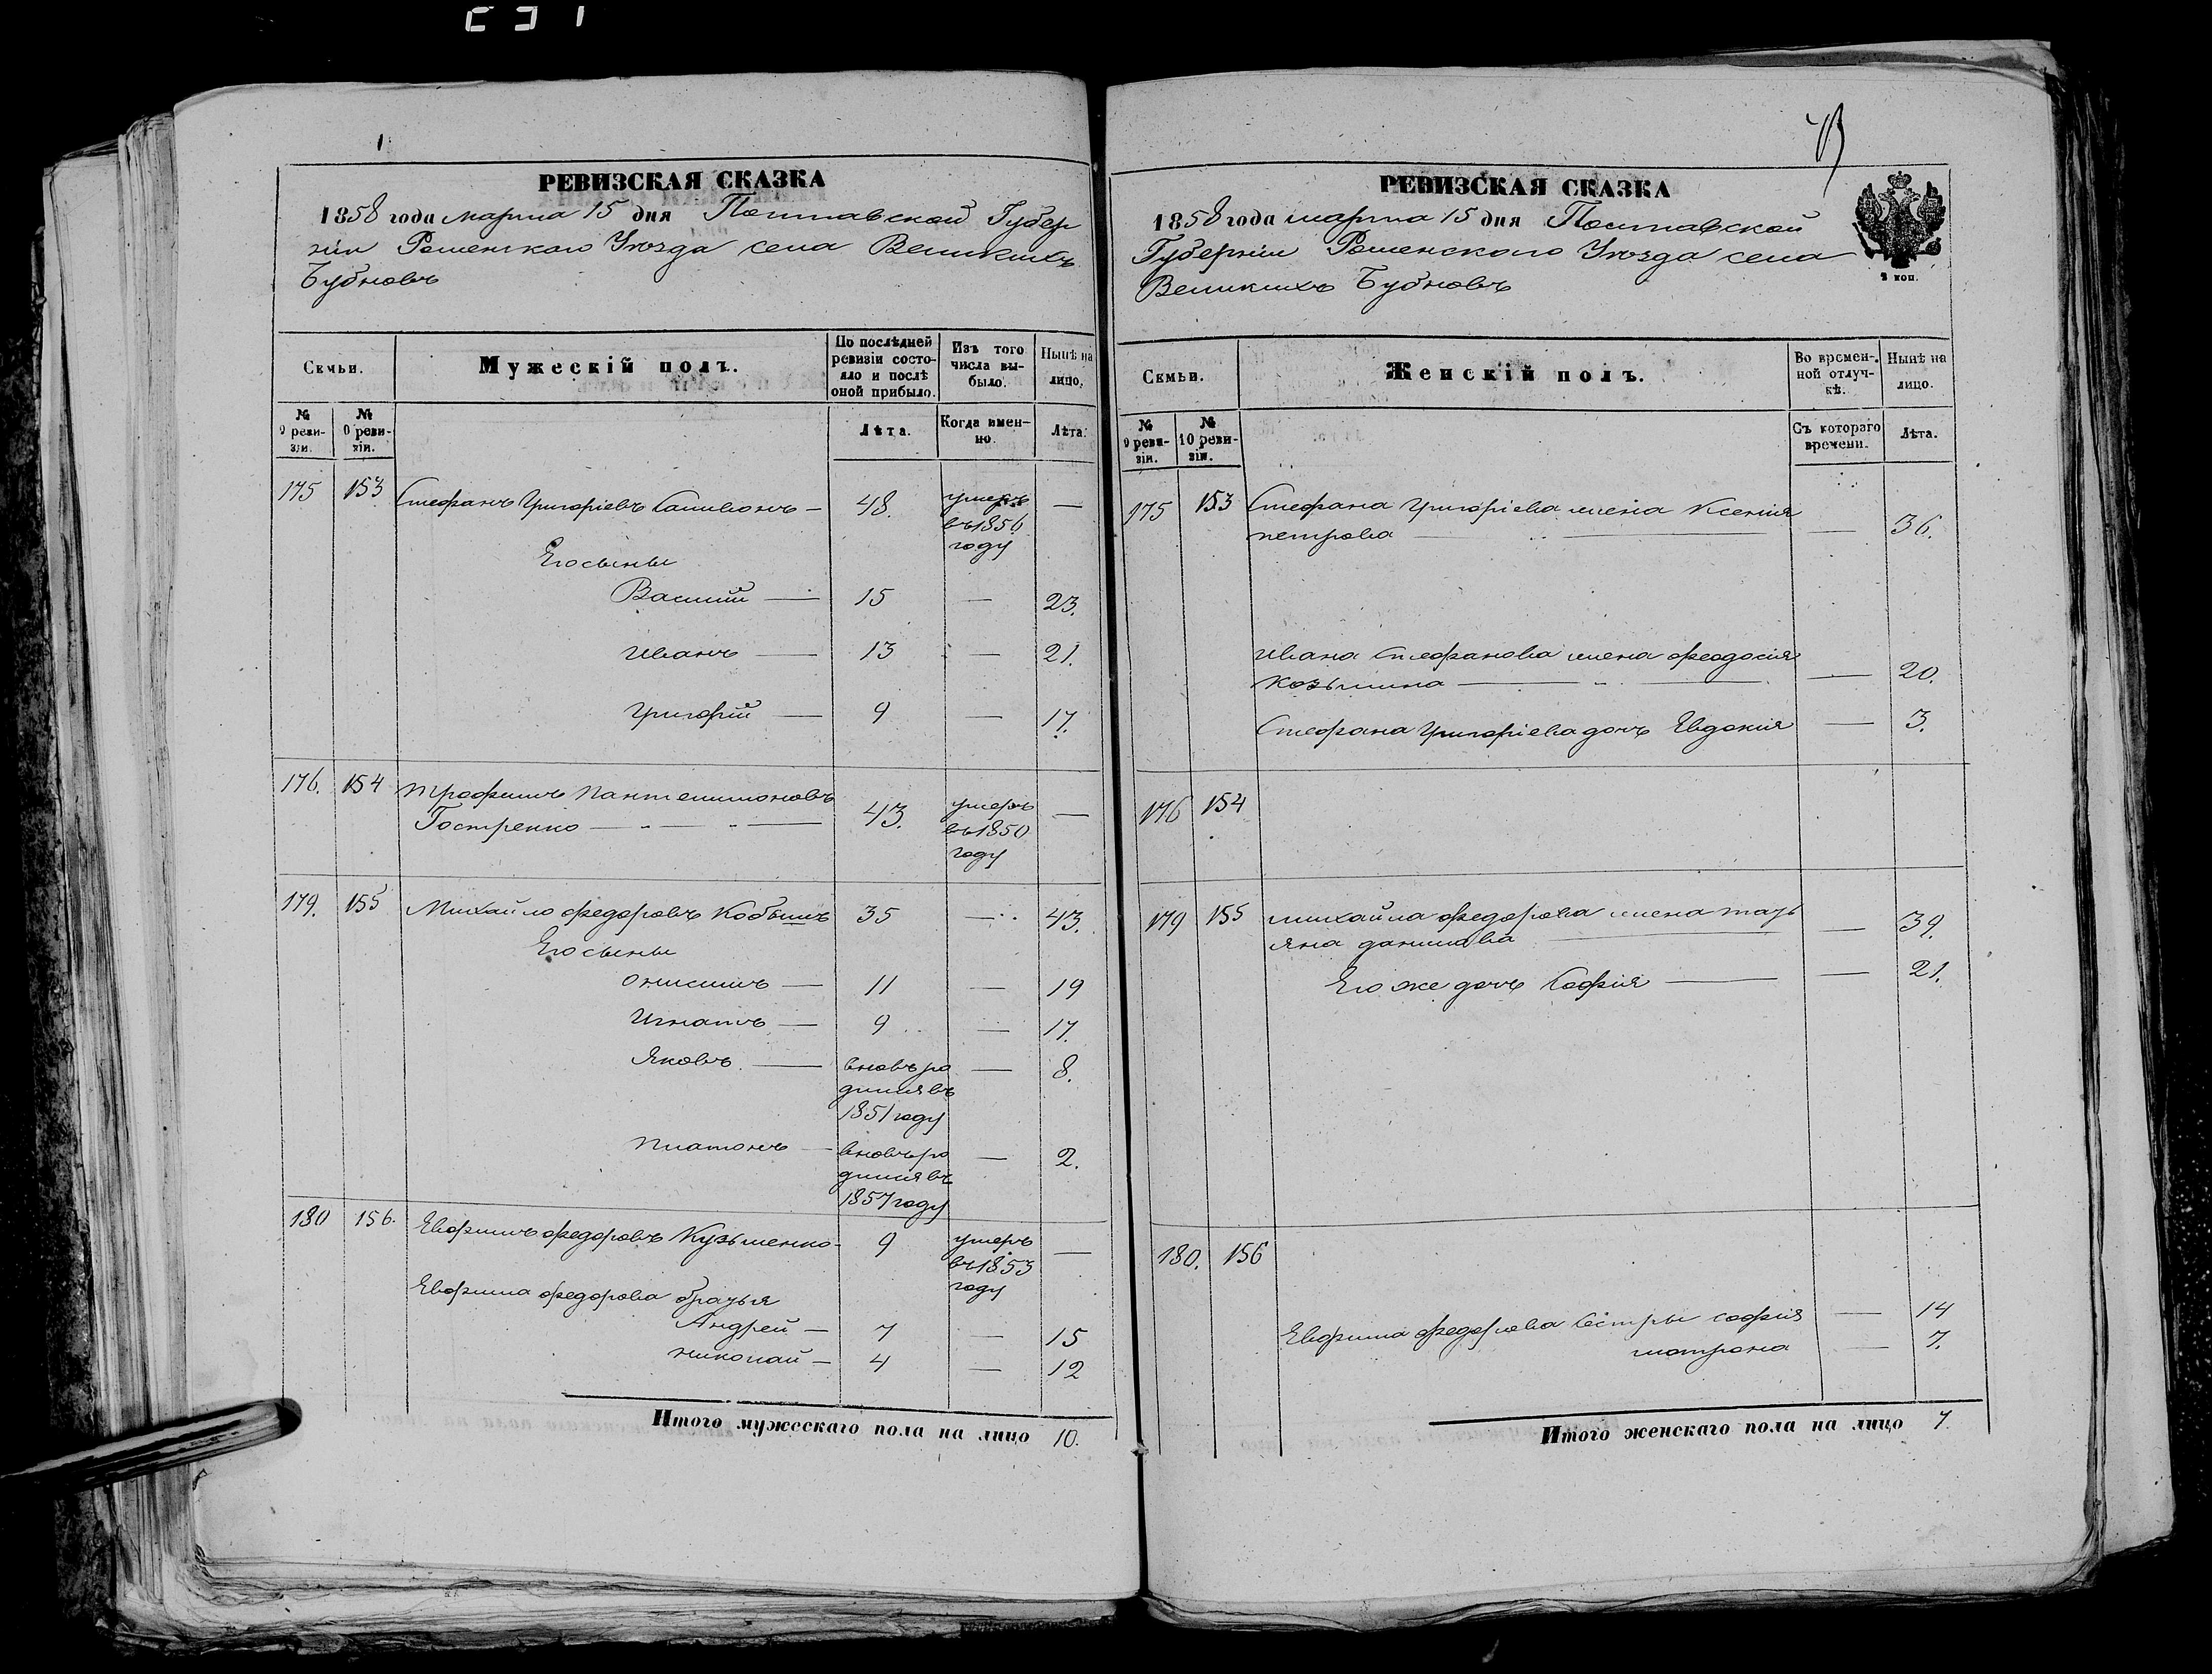 РЕВИЗСКАЯ СКАЗКА
1858 года марта 15 дня Полтавской Губер
ніи Роменского Уѣзда села Великихъ
Бубновъ
Семьи.
Мужескій полъ.
По послѣдней ревизіи состояло и послѣ оной прибыло.
Изъ того числа выбыло.
Нынѣ на лицо.
№ 9 ревизіи.
№ 0 ревизіи.
Лѣта.
Когда именно.
Лѣта.
175 153 Стефанъ Григоріевъ — 48. умеръ —
въ 1856
году
Его сыны
Василий — 15 — 23.
Иванъ — 13 — 21.
Григорий — 9 — 17.
176. 154 Трофимъ Пантелимоновъ
Гостренко — 43. умеръ —
въ 1850
году
179. 155 Михайло Федоровъ Кобышъ 35 — 43.
Его сыны
Онисимъ — 11 — 19
Игнатъ — 9 — 17.
Яковъ — вновь ро — 8.
дился въ
1851 году
Платонъ — вновь ро — 2.
дился въ
1857 году
180 156. Евфимъ Федоровъ Кузьменко - 9 умеръ —
въ 1853
году
Евфима Федорова братья
Андрей — 7 — 15
Николай — 4 — 12
Итого мужескаго пола на лицо 10.
РЕВИЗСКАЯ СКАЗКА
1858 года марта 15 дня Полтавской
Губерніи Роменского Уѣзда села
Великихъ Бубновъ
2 коп.
Семьи.
Женскій полъ.
Во временной отлучкѣ.
Нынѣ на лицо.
№ 9 ревизіи.
№ 10 ревизіи.
Съ котораго времени.
Лѣта.
175 153 Стефана Григоріева жена Ксенія
петрова — — 36.
Ивана Стефанова жена Феодосія
Козьмина — — 20.
Стефана Григоріева дочь Евдокія — 3.
176 154
179 155 Михайла Федорова жена тать
яна данилова — — 39.
Его же дочь Софія — — 21.
180. 156
Евфима Федорова сестры софія — 14
матрона — 7.
Итого женскаго пола на лицо 7